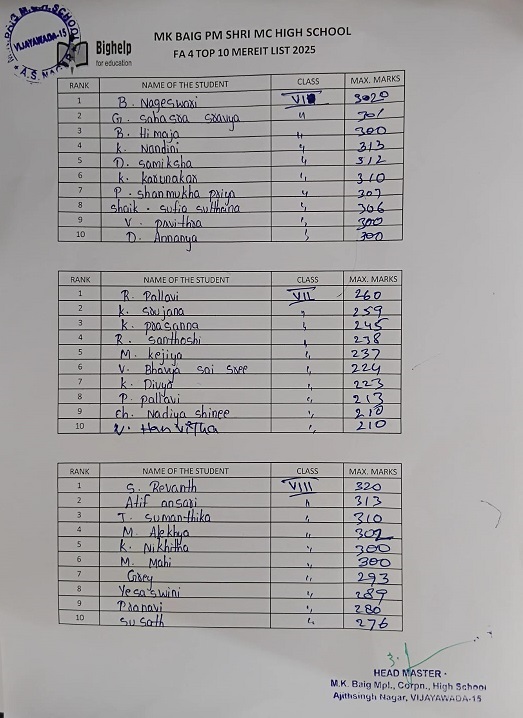 M.K. BAIG M.C. HIGH SCHOOL
VIJAYAWADA-15
A.S. NAGAR
Bighelp
for education
MK BAIG PM SHRI MC HIGH SCHOOL
FA 4 TOP 10 MEREIT LIST 2025
RANK NAME OF THE STUDENT CLASS MAX. MARKS
1 B. Nageswari VI
2 G. Sahasra sravya "
3 B. Himaja " 300
4 K. Nandini " 313
5 D. samiksha " 312
6 K. Karunakar " 310
7 P. Shanmukha priya " 307
8 Shaik. Sufia sulthana " 306
9 V. pavithra " 300
10 D. Annanya " 300
RANK NAME OF THE STUDENT CLASS MAX. MARKS
1 R. Pallavi VII 260
2 K. Soujana " 259
3 K. prasanna " 245
4 R. santhoshi " 238
5 M. Kejiya " 237
6 V. Bhavya sai sree " 224
7 K. Divya " 223
8 P. pallavi " 213
9 Ch. Nadiya shinee " 210
10 V. Hanvitha " 210
RANK NAME OF THE STUDENT CLASS MAX. MARKS
1 S. Revanth VIII 320
2 Atif ansari " 313
3 T. Sumanthika " 310
4 M. Alekhya " 302
5 K. Nikhitha " 300
6 M. Mahi " 300
7 " 293
8 Yesaswini " 289
9 Pranavi " 280
10 " 276
HEAD MASTER
M.K. Baig Mpl., Corpn., High School
Ajithsingh Nagar, VIJAYAWADA-15